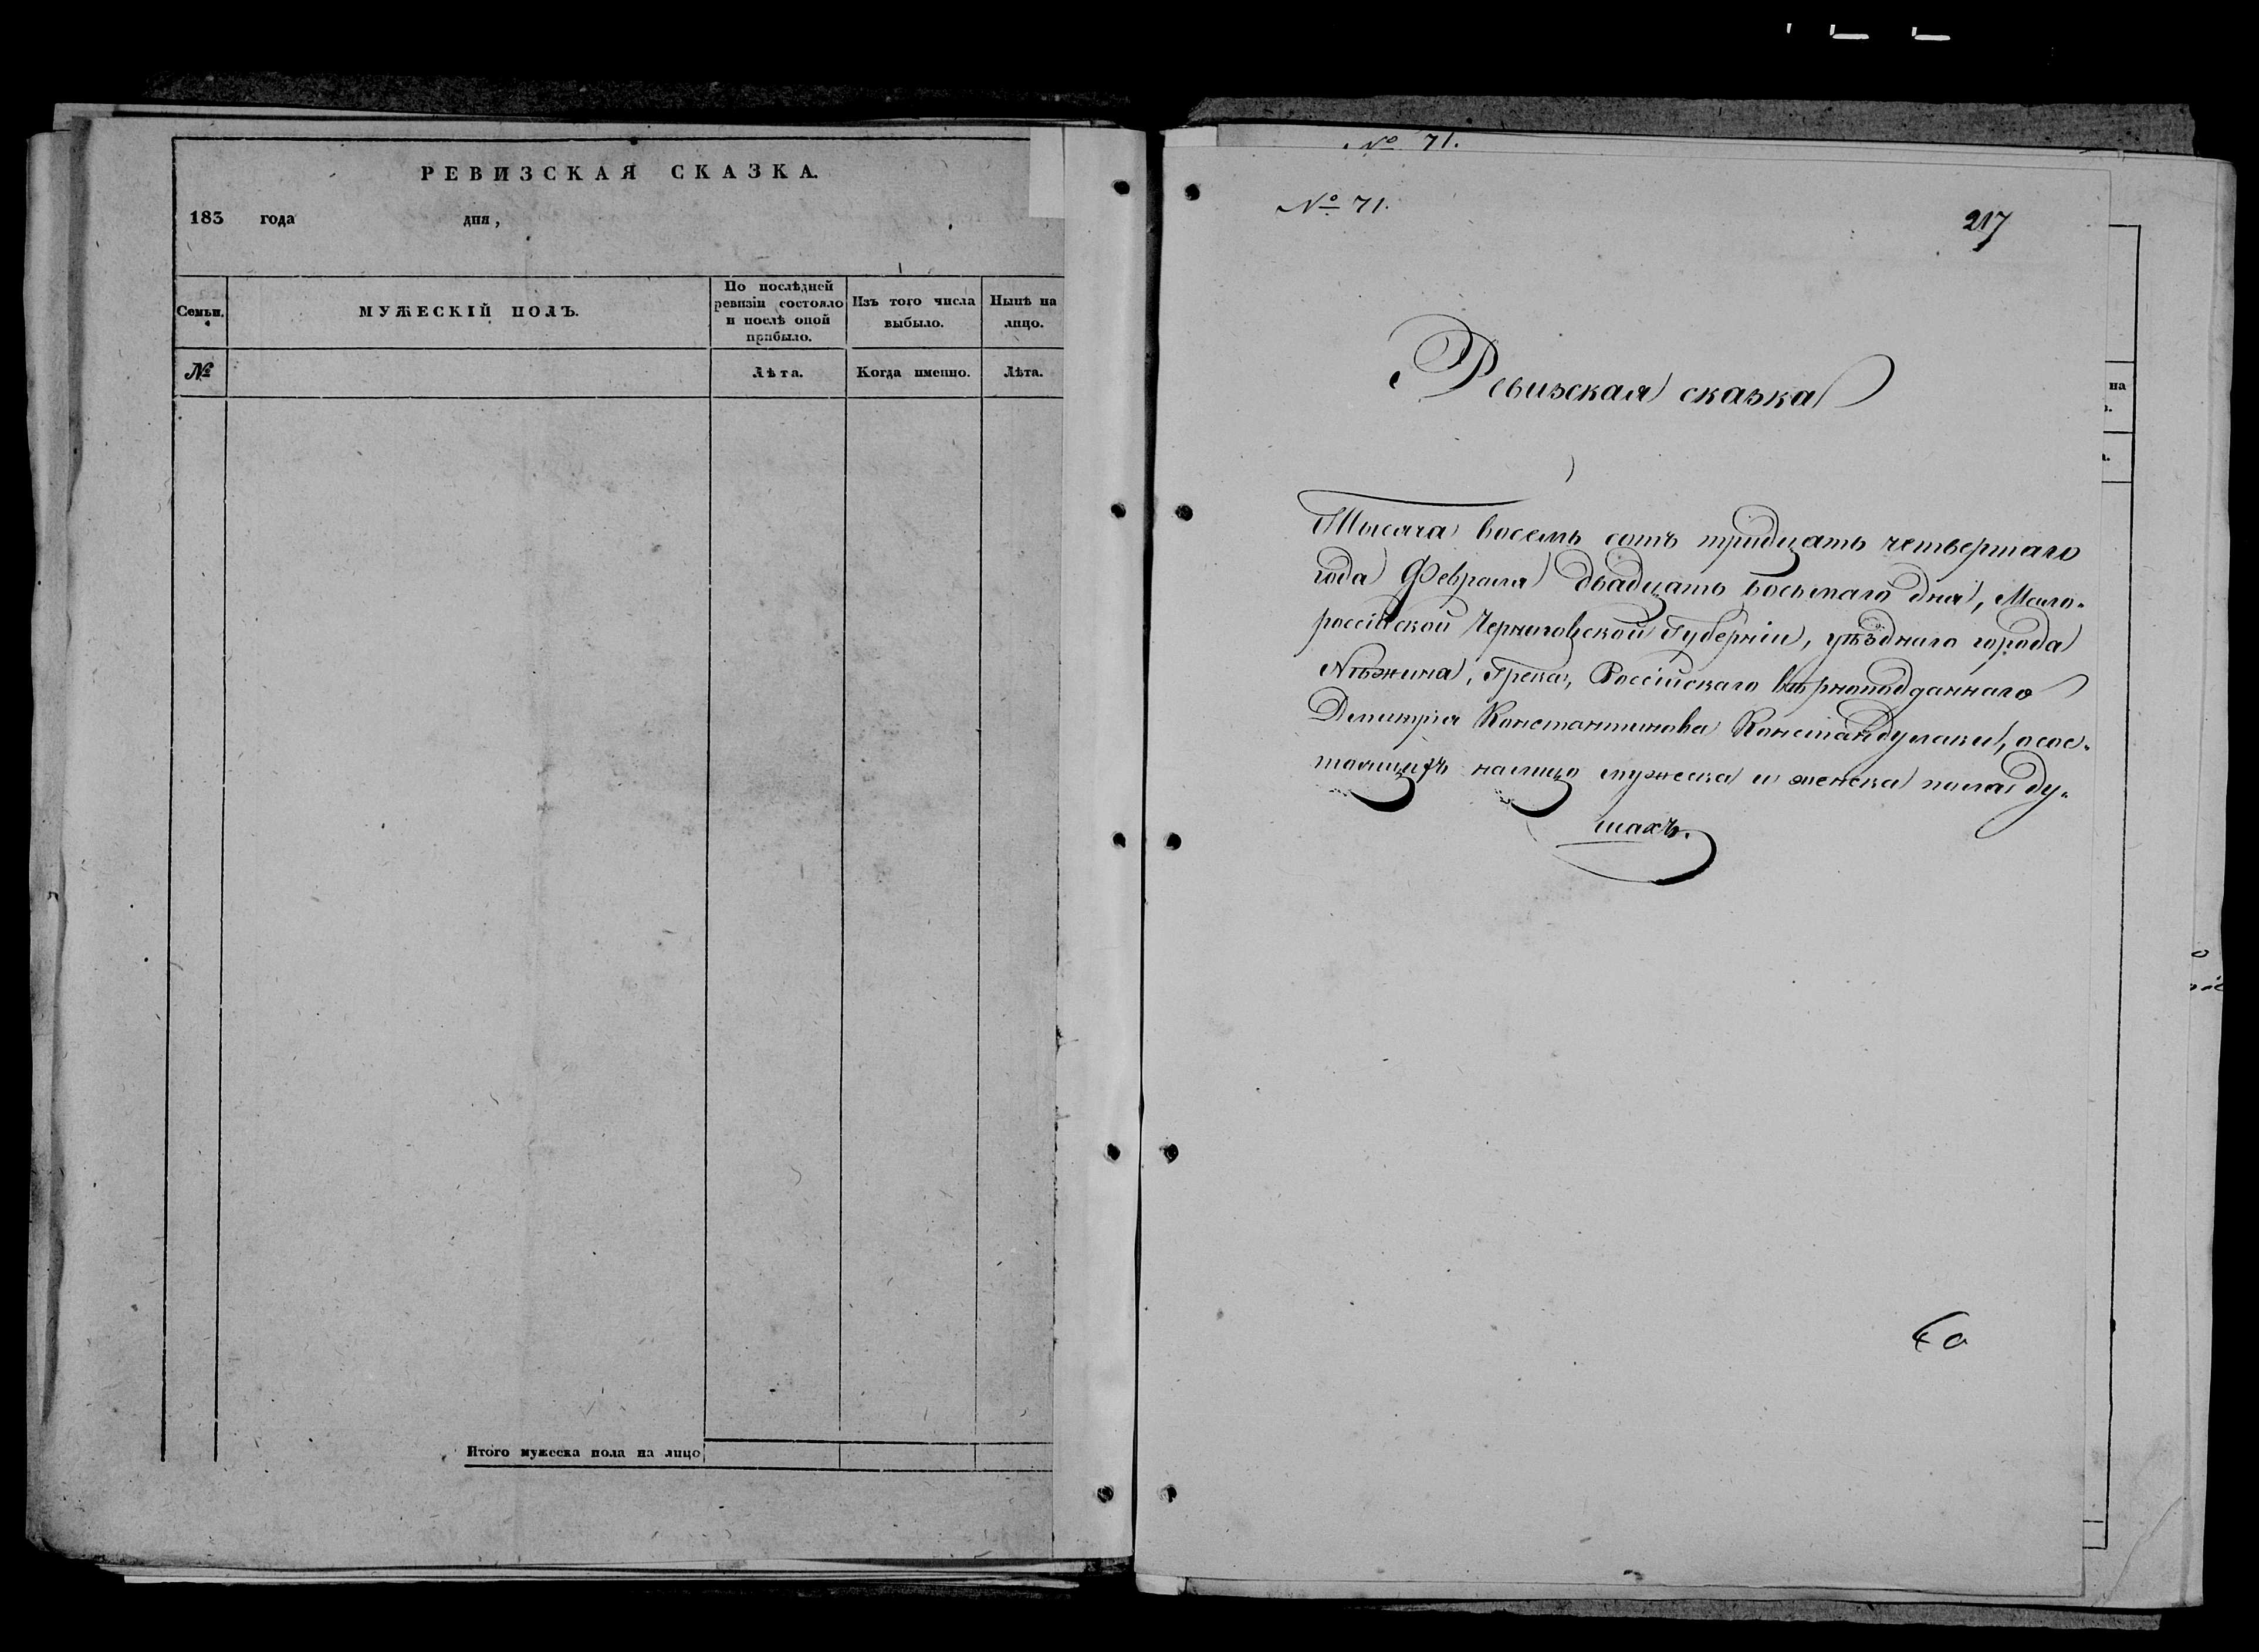 РЕВИЗСКАЯ СКАЗКА.
183 года дня,
Семьи.
МУЖЕСКІЙ ПОЛЪ.
По послѣдней ревизіи состояло и послѣ оной прибыло.
Изъ того числа выбыло.
Нынѣ на лицо.
№
Лѣта.
Когда именно.
Лѣта.
Итого мужеска пола на лицо
№ 71.
№ 71.
217
Ревизская сказка
Тысяча восемь сотъ тридцать четвертаго
года Февраля двадцать восьмаго дня, Мало-
россійской Черниговской Губерніи, уѣзднаго города
Нѣжина, Грека, Россійскаго вѣрноподданнаго
Дмитрія Константинова Константдулаки, осос-
тоящихъ налицо мужеска и женска пола ду-
шахъ.
на